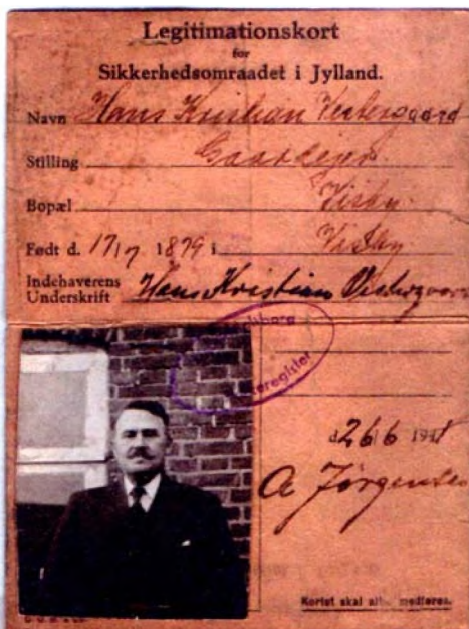 Legitimationskort
for
Sikkerhedsomraadet i Jylland.
Navn Hans Kristian Vestergaard
Stilling Gaardejer.
Bopæl Visby.
Født d. 17/7 1879 i Visby
Indehaverens
Underskrift Hans Kristian Vestergaard
d. 26/6 194
A Jørgensen
Kortet skal medføres.